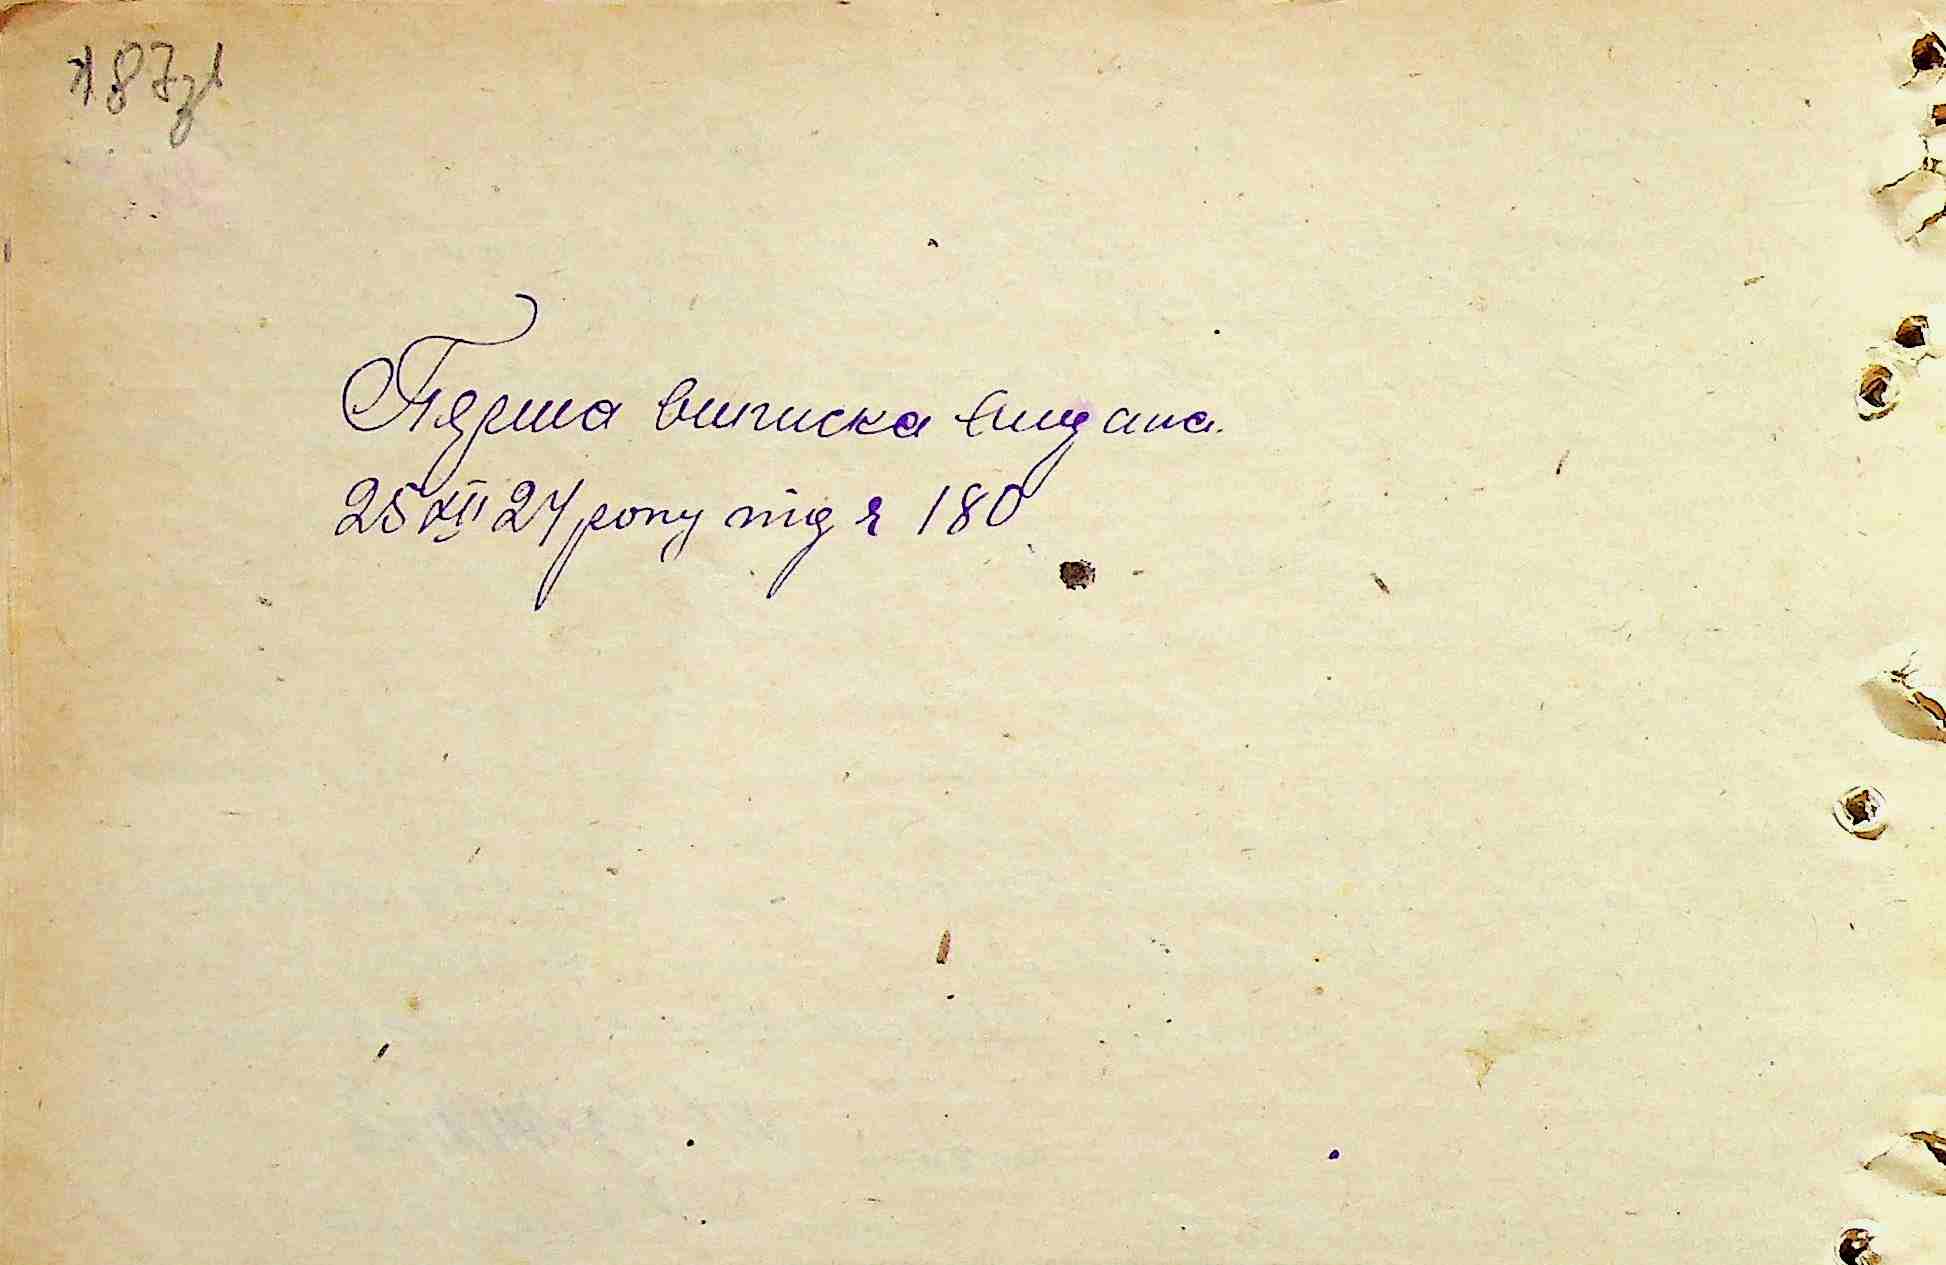 187зв
Перша виписка видана.
25 XII 24 року під № 180